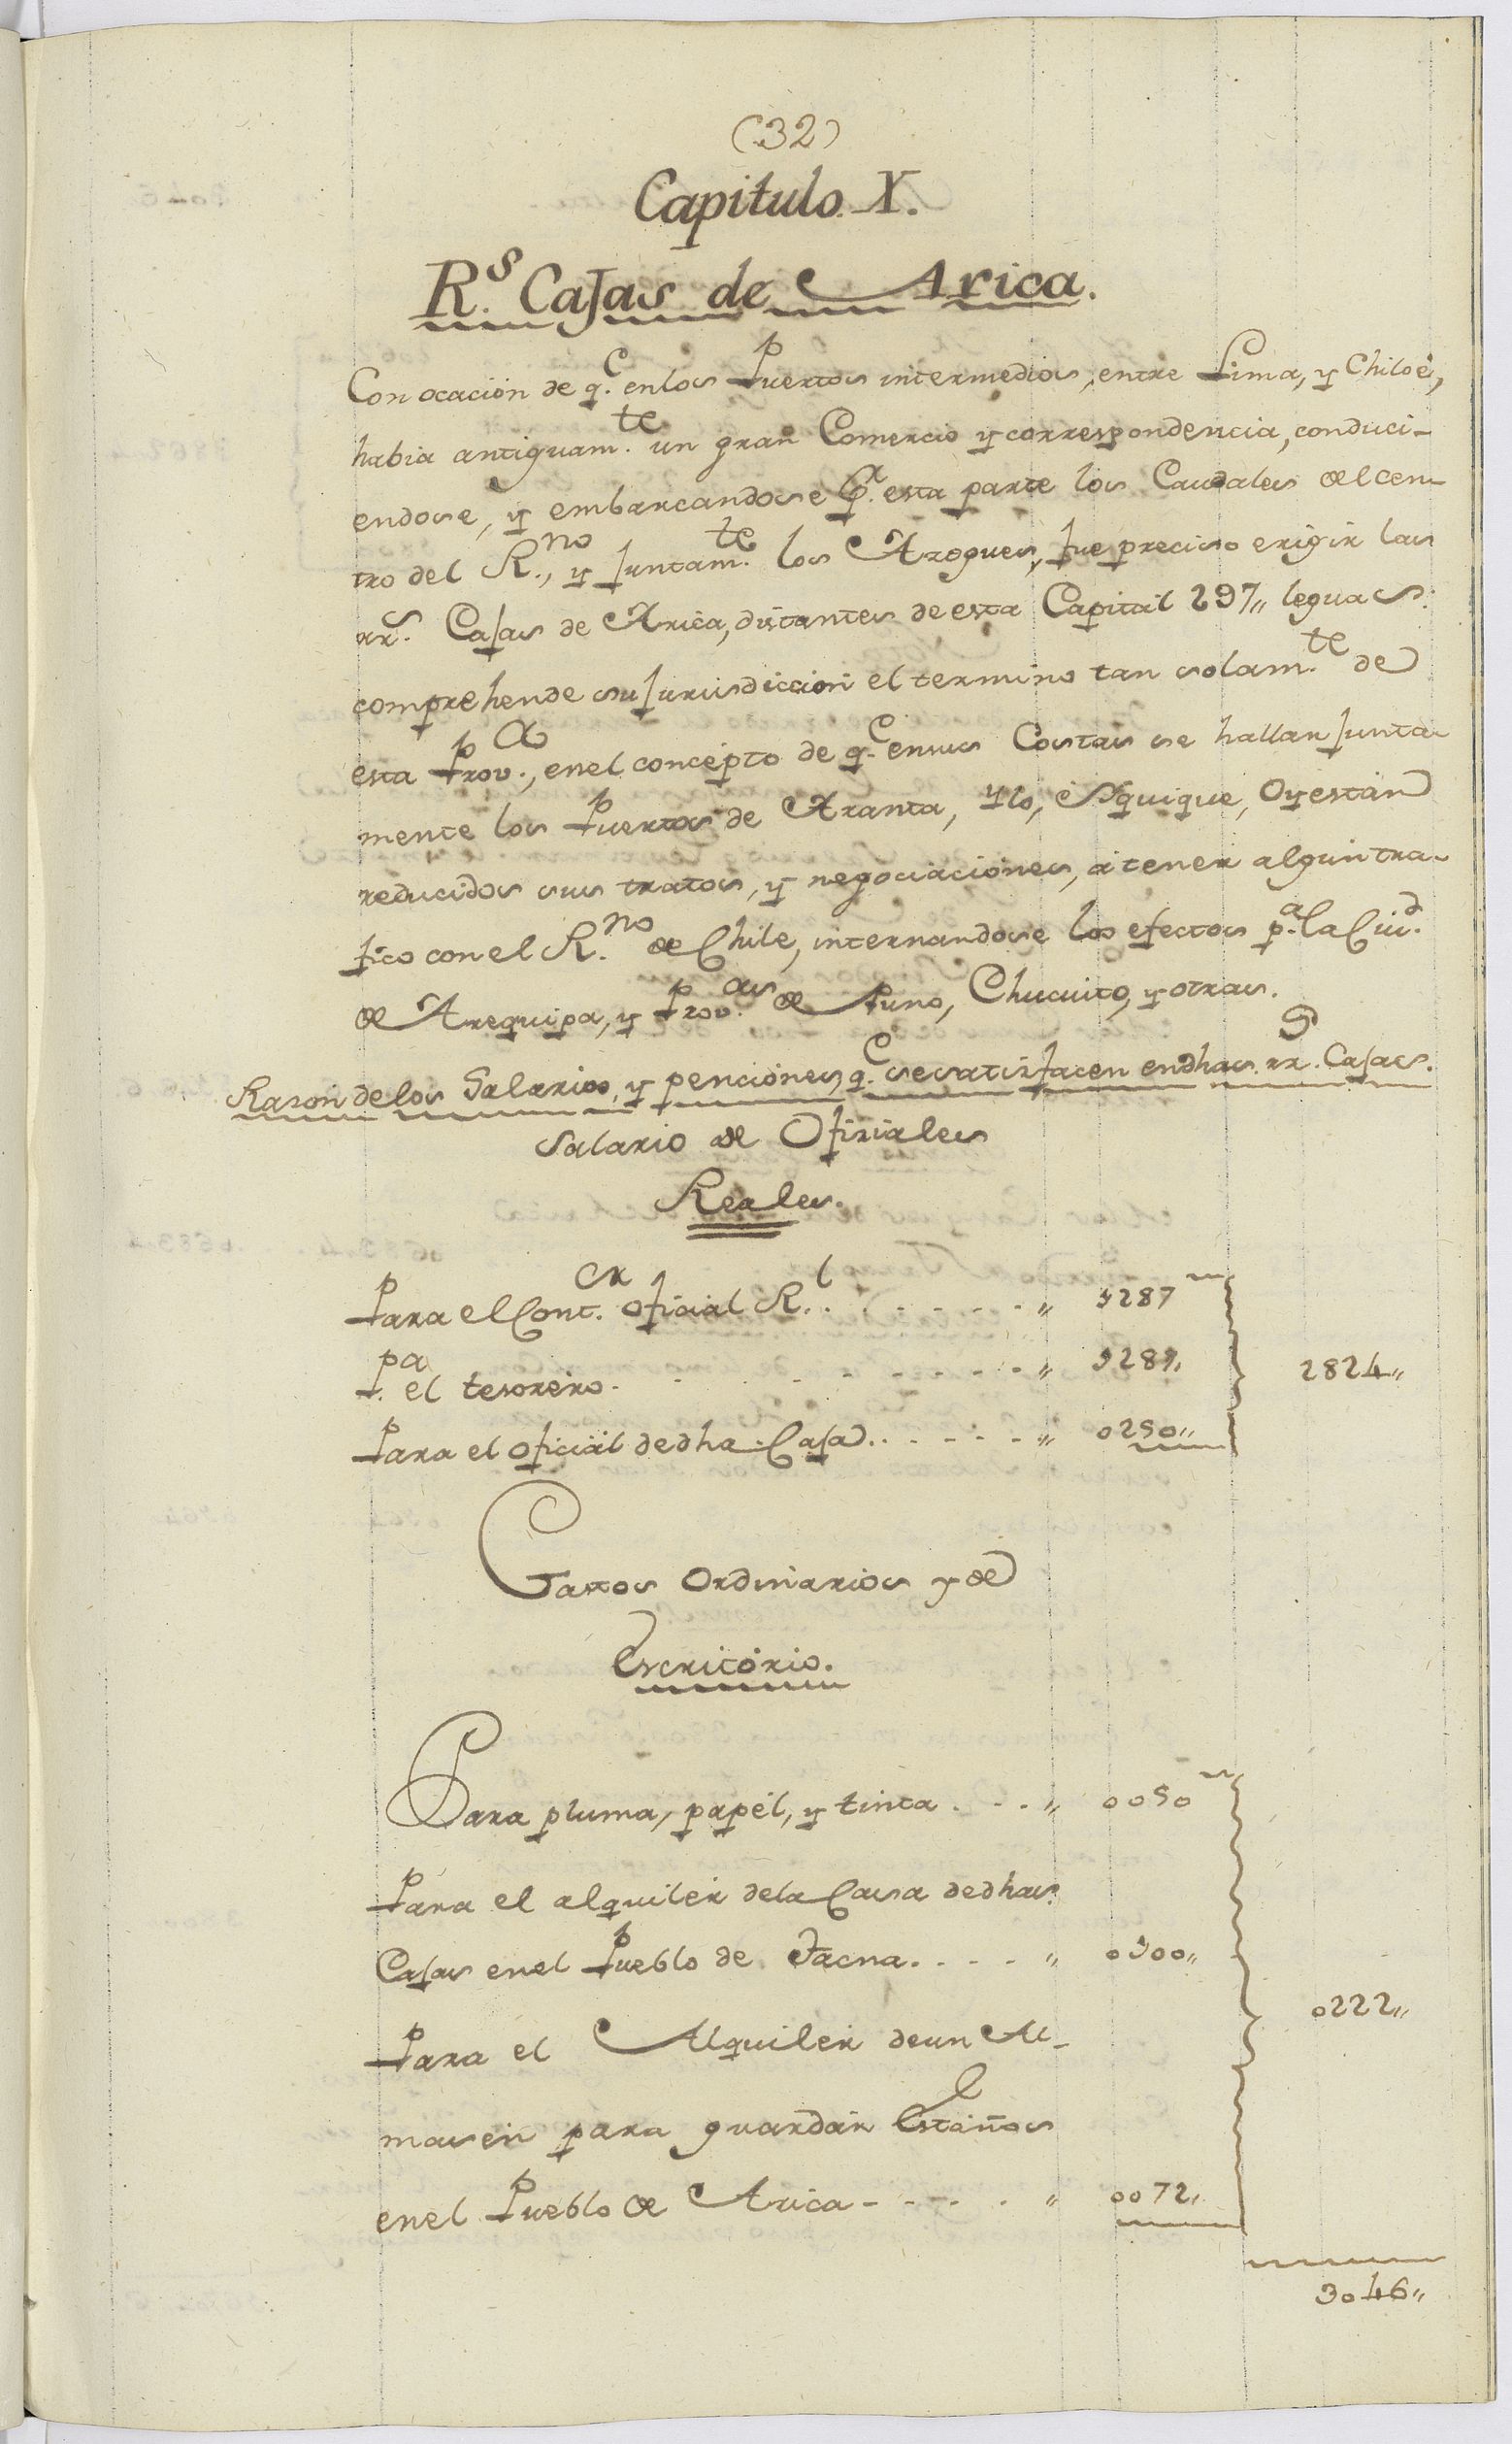 (32)
Capitulo. X.
R.ˢ Cajas de Arica.
Con ocación de q.ᵉ en los Puertos intermedios, entre Lima, y Chiloè,
habia antiguam.ᵗᵉ un gran Comercio y correspondencia, conduci-
endose, y embarcandose p.ʳ esta parte los Caudales del cen-
tro del R.ⁿᵒ, y juntam.ᵗᵉ los Azogues, fue preciso erigir las
rr.ˢ Cajas de Arica, distantes de esta Capital 297,, leguas:
comprehende su jurisdiccion el termino tan solam.ᵗᵉ de
esta Prov.ᵃ, en el concepto de q.ᵉ en sus Costas se hallan junta-
mente los Puertos de Aranta, Ylo, Yquique, Oy están
reducidos sus tratos, y negociaciones, à tener algun tra-
fico con el R.ⁿᵒ de Chile, internandose los efectos p.ᵃ la Ciu.ᵈ
de Arequipa, y Prov.ᵃˢ de Puno, Chucuito, y otras.
Rason de los Salarios, y penciones, q.ᵉ se satisfacen en dhas. rr.ˢ Cajas.
Salario de Oficiales
Reales.
Para el Cont.ᵒʳ oficial R.ˡ . . . . . . ,, 1287
P.ᵃ el tesorero. . . . . . . . . ,, 1287,, 2824,,
Para el oficial de dha. Caja. . . . . . ,, 0250,,
Gastos Ordinarios y de
Escritorio.
Para pluma, papel, y tinta . . . ,, 0050
Para el alquiler dela Casa de dhas.
Cajas en el Pueblo de Tacna. . . . . ,, 0100,,
0222,,
Para el Alquiler de un Al-
masen para guardar Estaños
en el Pueblo de Arica - . . . . ,, 0072,,
3046,,